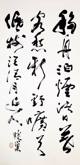 移舟泊烟渚日暮
客愁新野旷天
低樹江清月近人